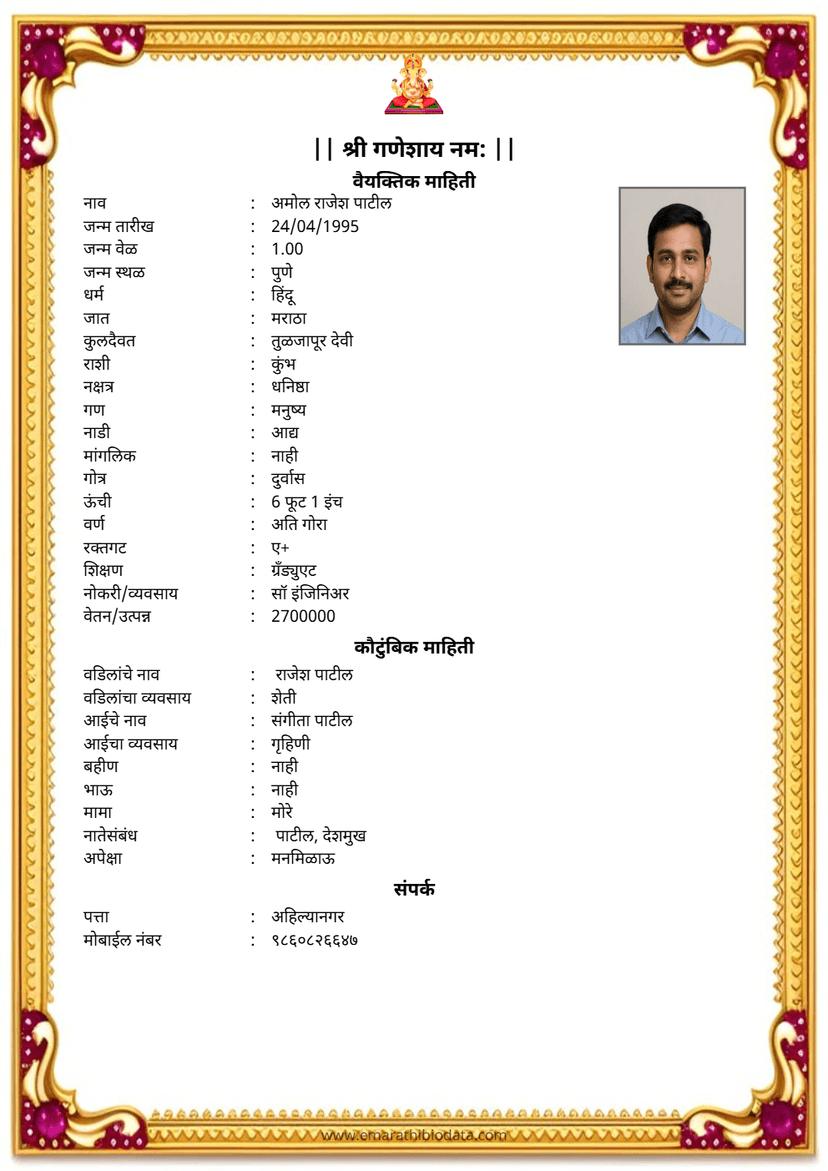 || श्री गणेशाय नम: ||
वैयक्तिक माहिती
नाव : अमोल राजेश पाटील
जन्म तारीख : 24/04/1995
जन्म वेळ : 1.00
जन्म स्थळ : पुणे
धर्म : हिंदू
जात : मराठा
कुलदैवत : तुळजापूर देवी
राशी : कुंभ
नक्षत्र : धनिष्ठा
गण : मनुष्य
नाडी : आद्य
मांगलिक : नाही
गोत्र : दुर्वास
ऊंची : 6 फूट 1 इंच
वर्ण : अति गोरा
रक्तगट : ए+
शिक्षण : ग्रॅंड्युएट
नोकरी/व्यवसाय : सॉ इंजिनिअर
वेतन/उत्पन्न : 2700000
कौटुंबिक माहिती
वडिलांचे नाव : राजेश पाटील
वडिलांचा व्यवसाय : शेती
आईचे नाव : संगीता पाटील
आईचा व्यवसाय : गृहिणी
बहीण : नाही
भाऊ : नाही
मामा : मोरे
नातेसंबंध : पाटील, देशमुख
अपेक्षा : मनमिळाऊ
संपर्क
पत्ता : अहिल्यानगर
मोबाईल नंबर : ९८६०८२६६४७
www.emarathibiodata.com